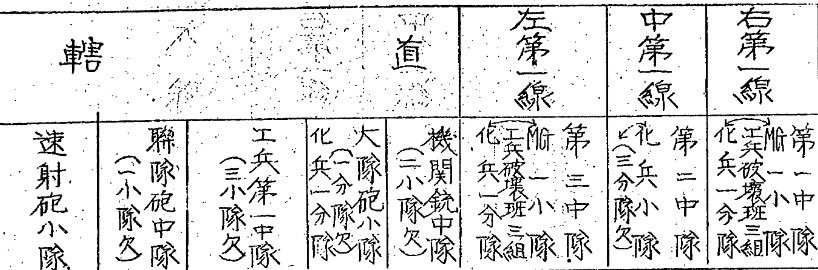 右第一線
第一中隊
MG一小隊
工兵破壊班三組
化兵一分隊
中第一線
第二中隊
化兵小隊
(三分隊欠)
左第一線
第三中隊
MG一小隊
工兵破壊班三組
化兵一分隊
直轄
機関銃中隊
(二小隊欠)
大隊砲小隊
(一分隊欠)
化兵一分隊
工兵第一中隊
(三小隊欠)
聯隊砲中隊
(一小隊欠)
速射砲小隊